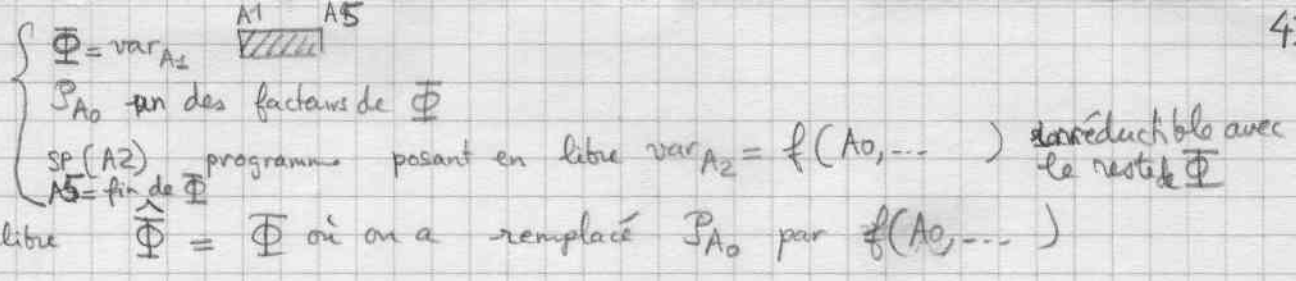 A1 A5
Φ = var_A1
4
ρ_A0 un des facteurs de Φ
SP(A2) programme posant en libre var_A2 = f(A0,...) non réductible avec
le reste de Φ
A5 = fin de Φ
libre Φ̂ = Φ où on a remplacé ρ_A0 par f(A0,...)